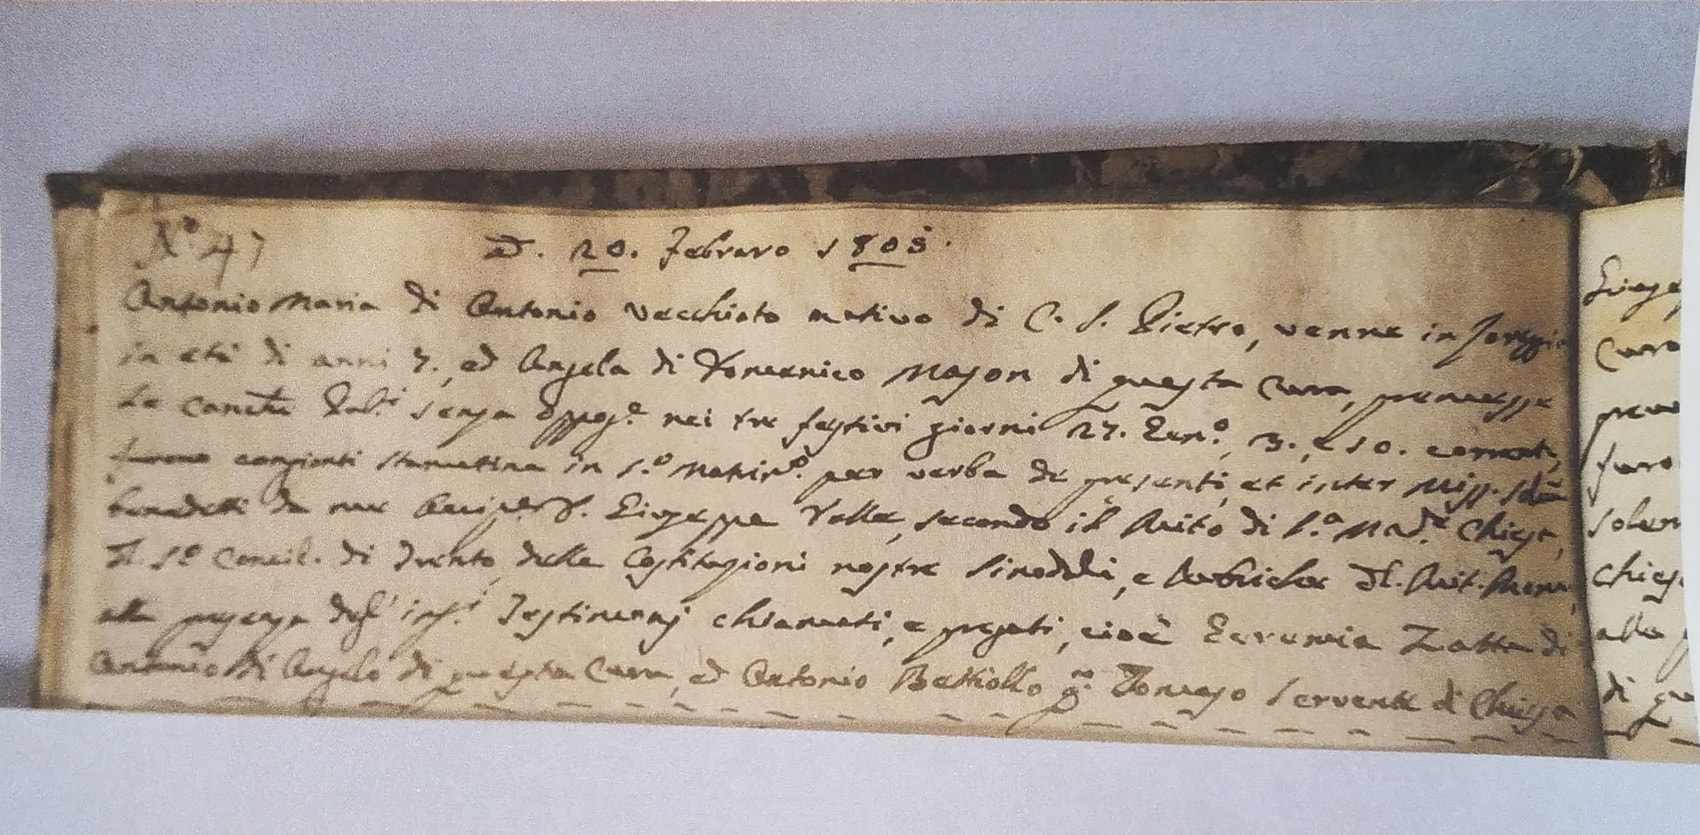 N.º 47
Ad. 20. Febraro 1805.
Antonio Maria di Antonio Vecchiato nativo di C. S. Pietro, venne in
in età di anni 7., ed Angela di Domenico Mason di questa Cura, premesse
Le Canche Pub.i senza oppos.e nei tre festivi giorni 27. Gen.o, 3., e 10. corrent,
furono congionti stamattina in S.º Matrim.º per verba de presenti, et inter Miss. Solẽ
benedetti da me D. Giuseppe Valle, secondo il Ruito di S.a Mad.e Chiesa,
Il S.º Concil. di Trento, delle Costituzioni nostre Sinodali, e Rubriche Dl. Rit. Rom.,
alla presenza degl' inf.i Testimonj chiamati, e pregati, cioè Geremia Zatta di
Antonio di Angelo di questa Cura, ed Antonio Battiollo q. Tomaso Servente di Chiesa
Giusep
Cura
preme
furo
Solen
Chies
alla
di qu